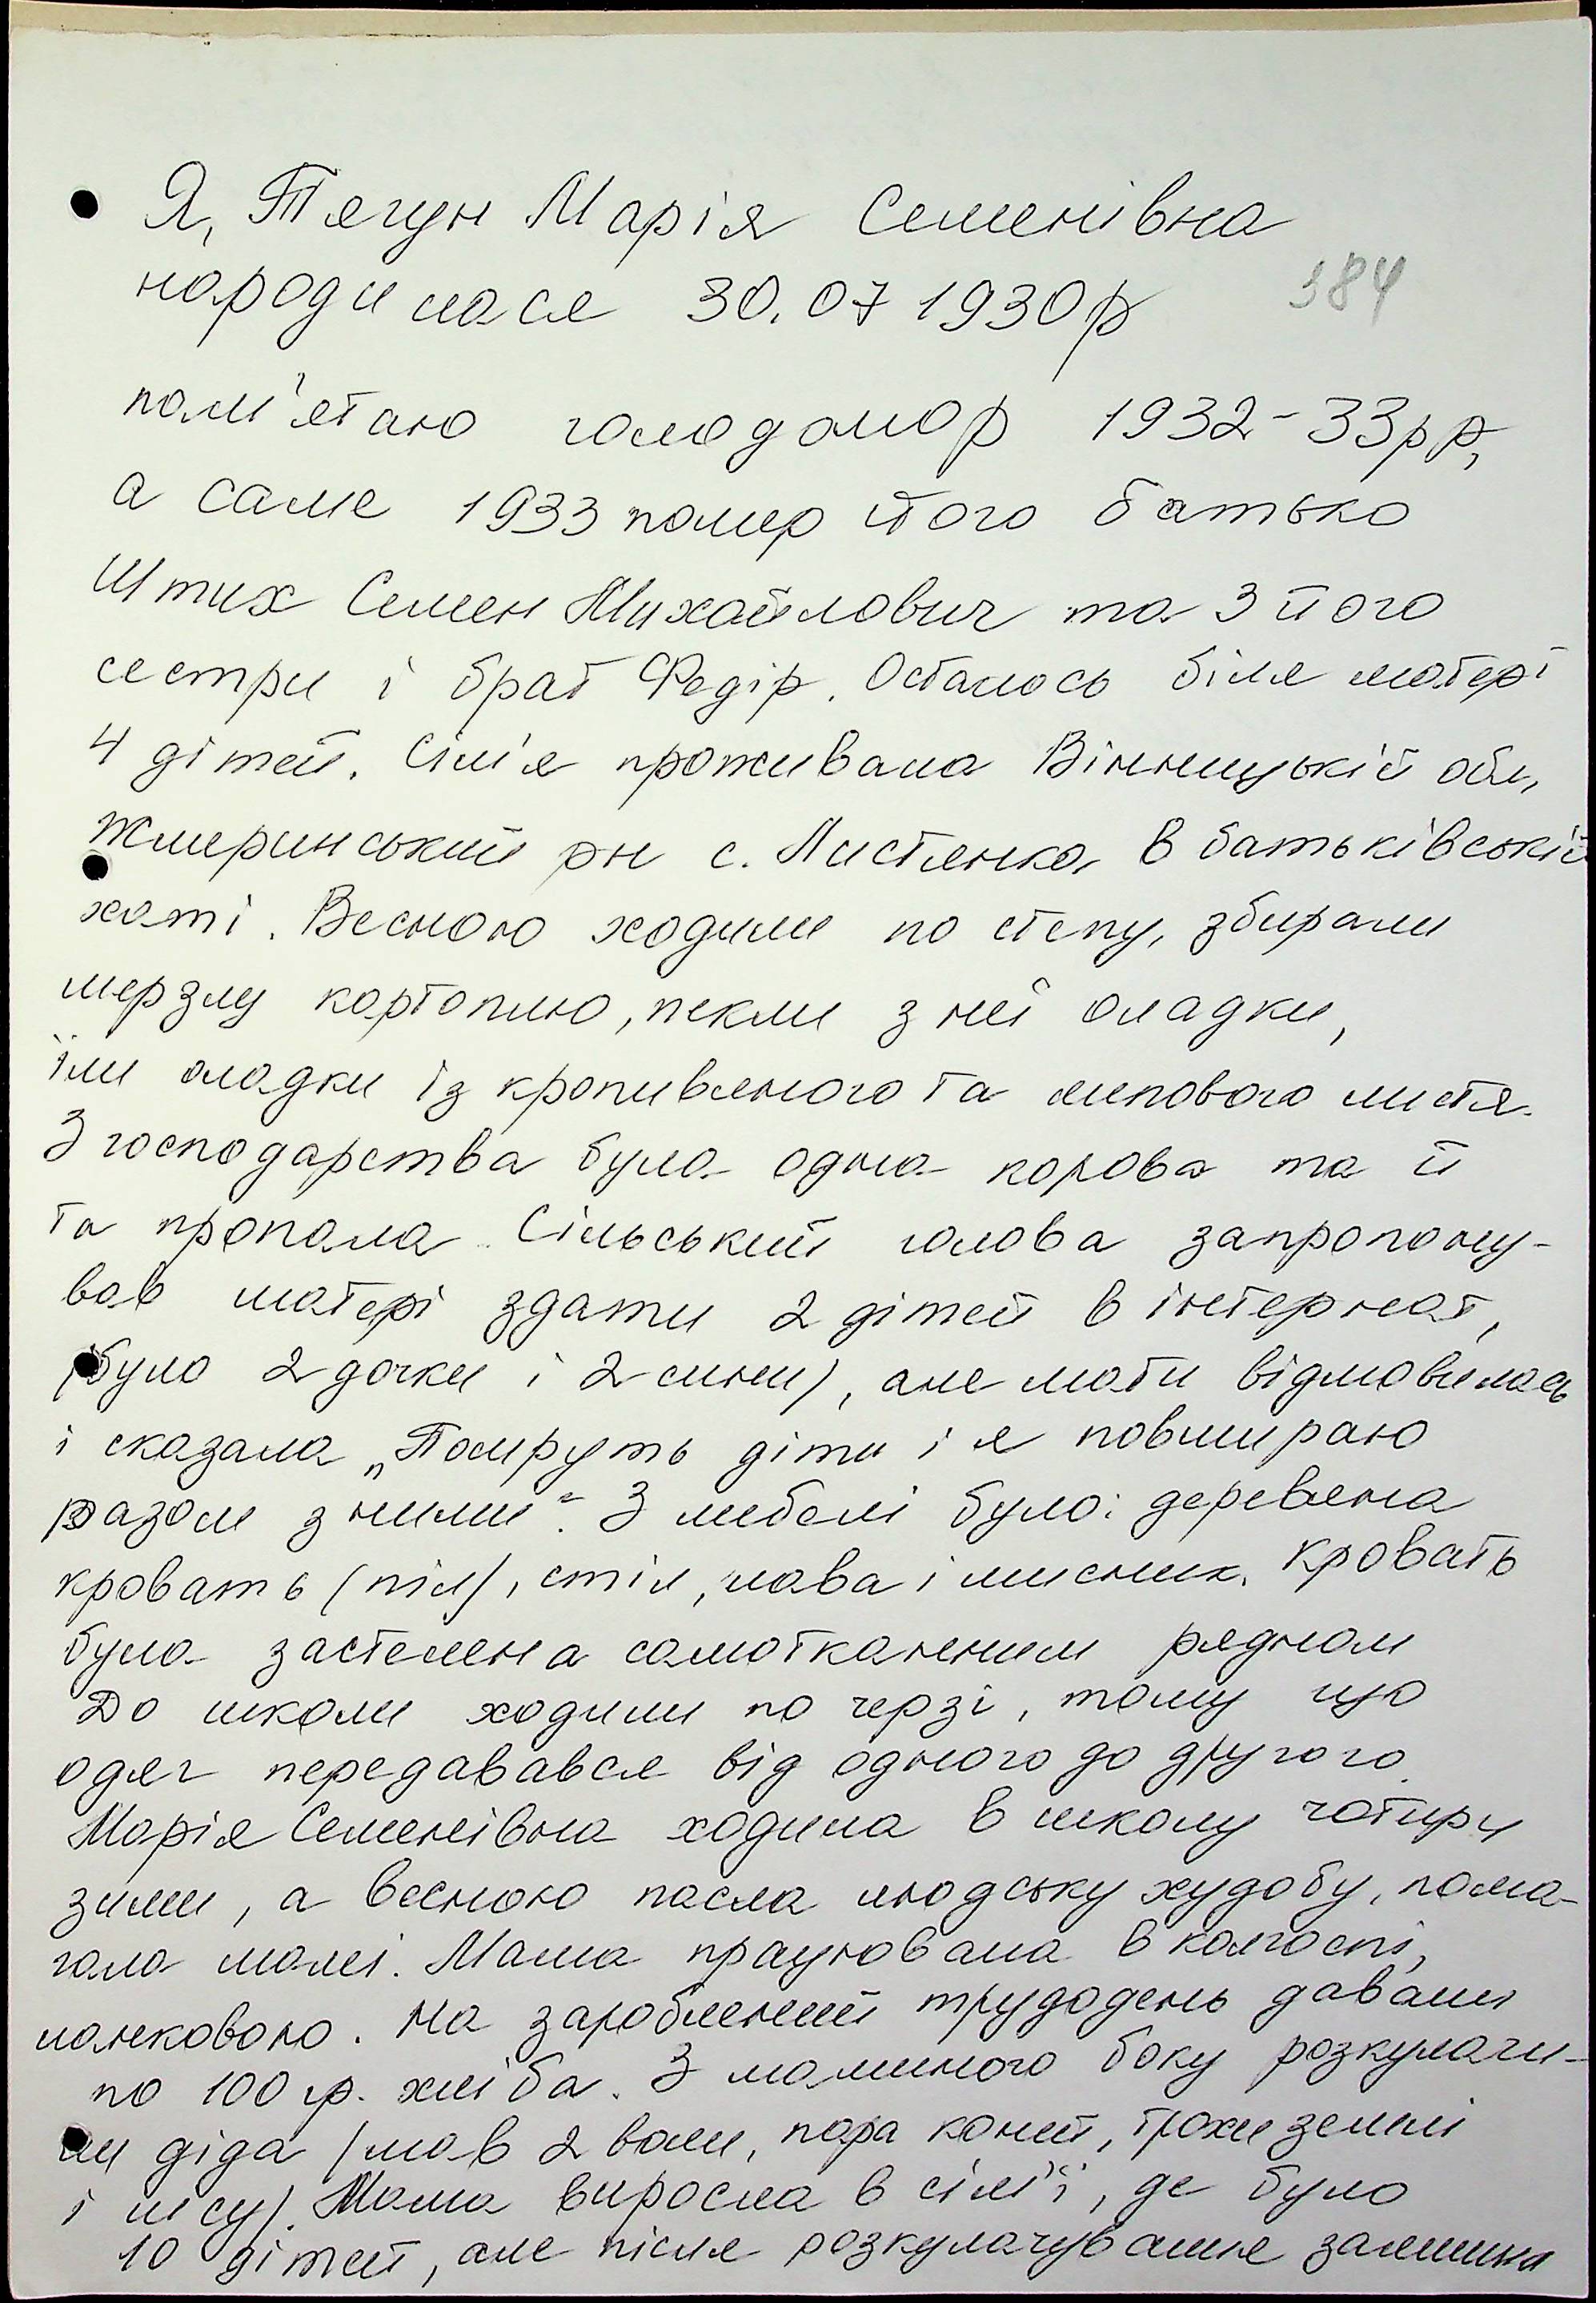 Я, Тягун Марія Семенівна
народилася 30.07 1930р
384
пам'ятаю голодомор 1932-33рр,
а саме 1933 помер його батько
Штих Семен Михайлович та 3 його
сестри і брат Федір. Осталось біля матері
4 дітей. Сім'я проживала Вінницькій обл,
Жмеринський рн с. Листянка в батьківській
хаті. Весною ходили по степу, збирали
мерзлу картоплю, пекли з неї оладки,
їли оладки із кропивяного та липового листя.
З господарства була одна корова та й
та пропала. Сільський голова запропону-
вав матері здати 2 дітей в інтернат,
(було 2 дочки і 2 сини), але мати відмовилась
і сказала „Помруть діти і я повмираю
разом з ними". З мебелі було: деревяна
кровать (піл), стіл, лава і мисник. Кровать
була застелена самотканним рядном
До школи ходили по черзі, тому що
одяг передавався від одного до другого.
Марія Семенівна ходила в школу чотири
зими, а весною пасла людську худобу, пома-
гала мамі. Мама працювала в колгоспі,
ланковою. На зароблений трудодень давали
по 100 гр. хліба. З маминого боку розкулачи-
ли діда (мав 2 воли, пара коней, трохи землі
і лісу). Мама виросла в сім'ї, де було
10 дітей, але після розкулачування залишили